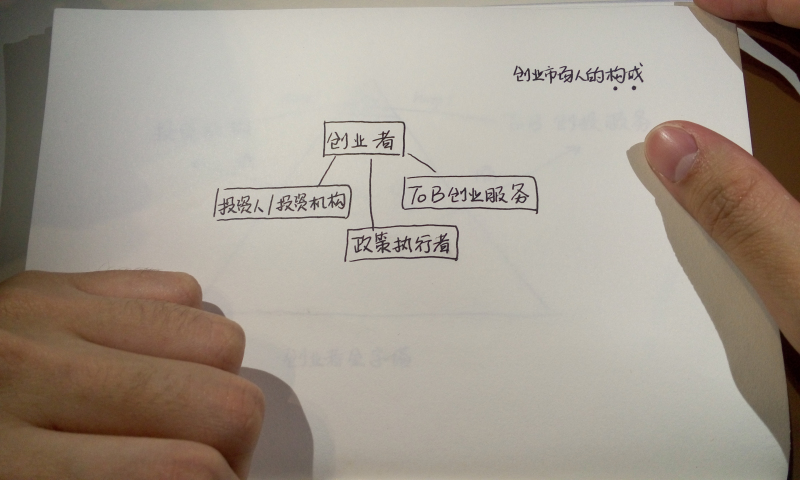 创业市场人的构成
创业者
投资人/投资机构
ToB创业服务
政策执行者